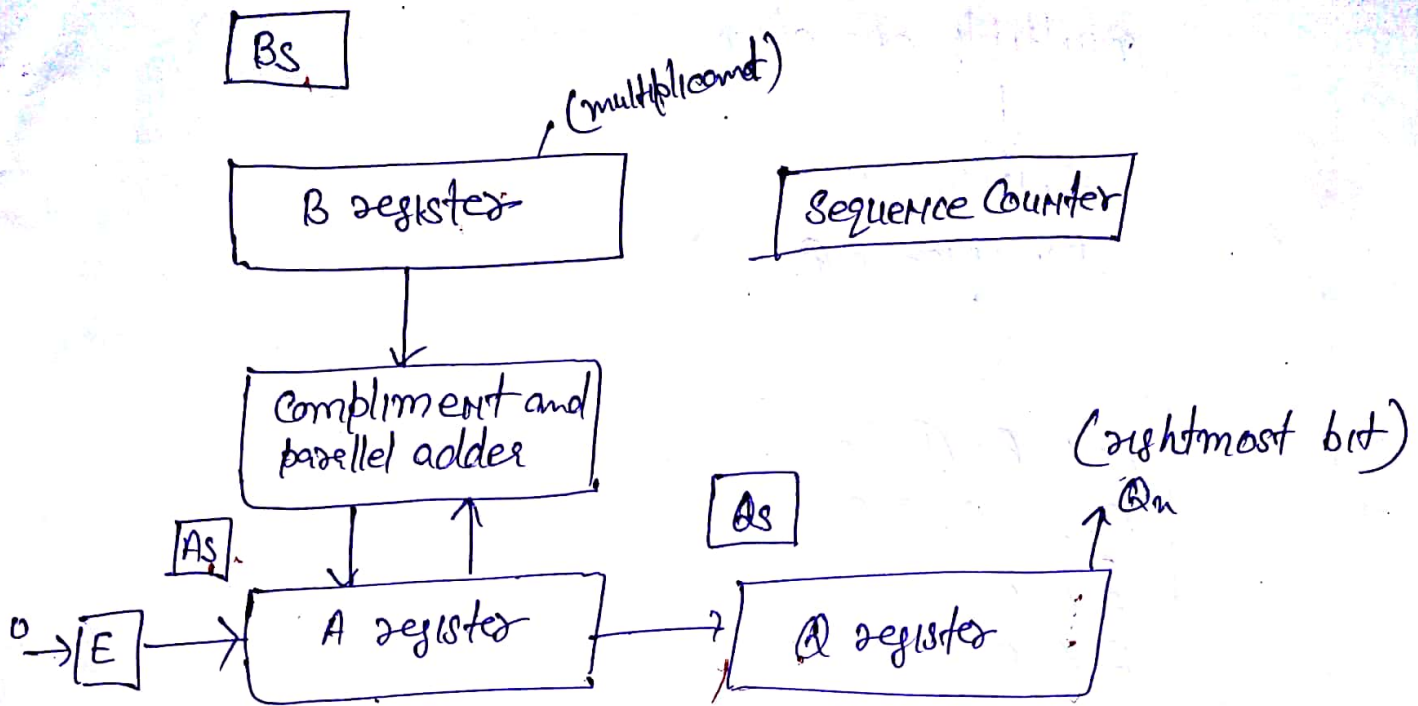 Bs
(multiplicamd)
B register
Sequence Counter
Compliment and
parellel adder
(rightmost bit)
Qn
Qs
As
0
E
A register
Q register